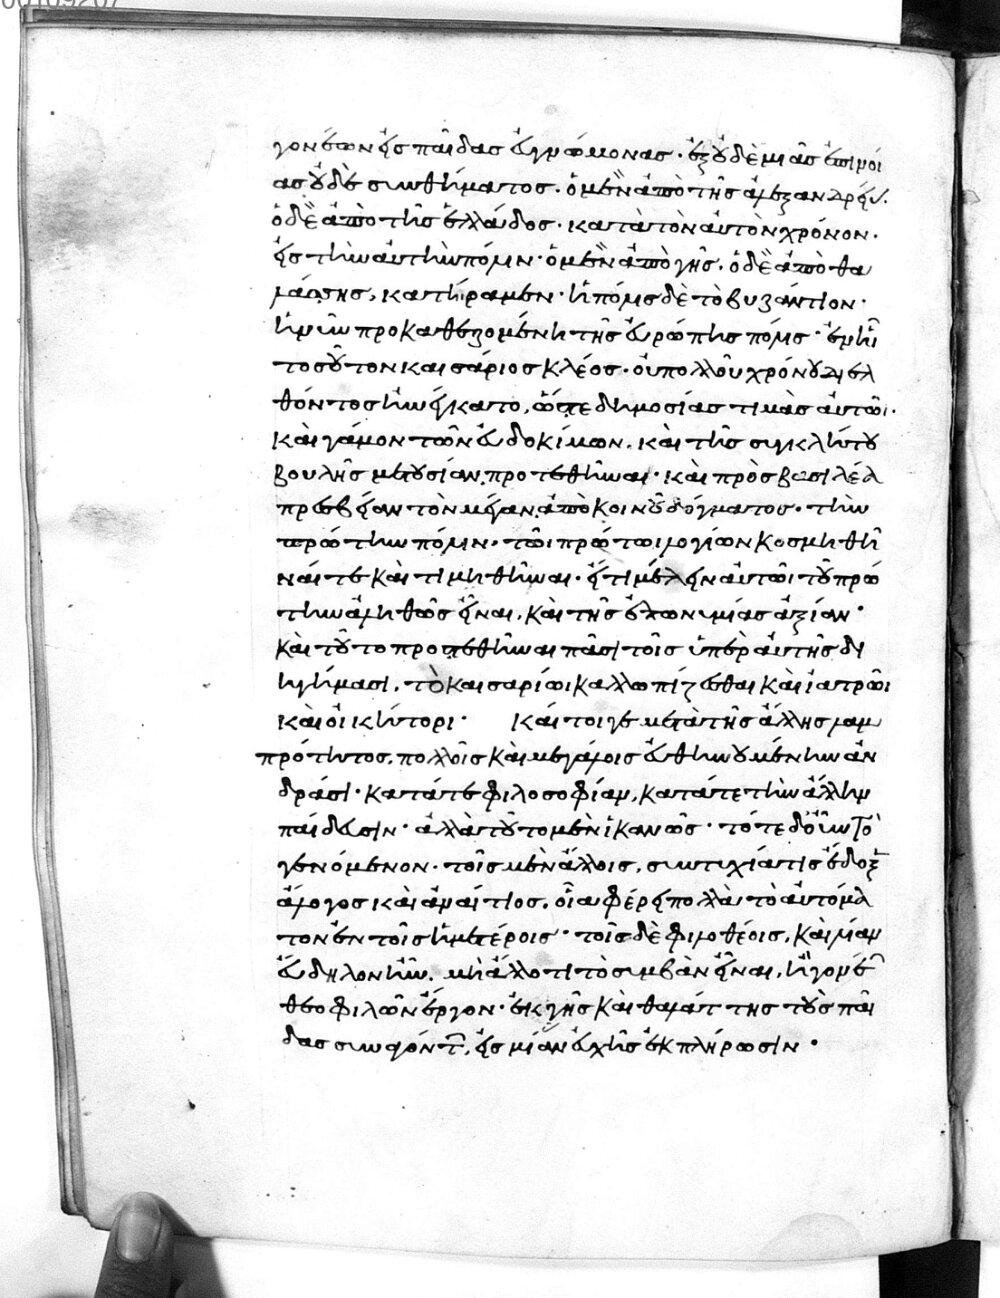 00109207
γονέων εἰς παῖδας εὐγνώμονας· ἐξ οὐδεμιᾶς ἐπινοί
ας οὐδὲ συνθήματος· ὁ μὲν ἀπὸ τῆς ἀλεξανδρείας·
ὁ δὲ ἀπὸ τῆς ἑλλάδος· κατὰ τὸν αὐτὸν χρόνον·
εἰς τὴν αὐτὴν πόλιν· ὁ μὲν ἀπὸ γῆς, ὁ δὲ ἀπὸ θα
λάσσης, κατήραμεν· ἡ πόλις δὲ τὸ βυζάντιον·
ἡ νῦν προκαθεζομένη τῆς εὐρώπης πόλις·
τοσοῦτον καισάριος κλέος· οὐ πολλοῦ χρόνου διελ
θόντος ἠνέγκατο, ὥστε δημοσίας τιμὰς αὐτῶι·
καὶ γάμον τῶν εὐδοκίμων, καὶ τῆς συγκλήτου
βουλῆς μετουσίαν, προτεθῆναι· καὶ πρὸς βασιλέα
πρεσβείαν τὸν μέγαν, ἀπὸ κοινοῦ δόγματος· τὴν
πρώτην πόλιν· τῶι πρώτωι λογίων κοσμηθῆ
ναί τε καὶ τιμηθῆναι· εἴ τι μέλειν αὐτῶι τοῦ πρώ
την ἀληθῶς εἶναι, καὶ τῆς ἐπωνυμίας ἀξίαν·
καὶ τοῦτο προστεθῆναι πᾶσι τοῖς ὑπὲρ αὐτῆς δι
ηγήμασι, τὸ καισαρίωι καλλωπίζεσθαι καὶ ἰατρῶι
καὶ οἰκήτορι· καίτοιγε μετὰ τῆς ἄλλης λαμ
πρότητος, πολλοῖς καὶ μεγάλοις εὐθηνουμένην ἀν
δράσι· κατά τε φιλοσοφίαν, κατά τε τὴν ἄλλην
παίδευσιν· ἀλλὰ τοῦτο μὲν ἱκανῶς· τότε δ' οὖν τὸ
γενόμενον· τοῖς μὲν ἄλλοις, συντυχία τις ἔδοξεν
ἄλογος καὶ ἀναίτιος, οἷα φέρει πολλὰ τὸ αὐτόμα
τον ἐν τοῖς ἡμετέροις· τοῖς δὲ φιλοθέοις, καὶ λίαν
εὔδηλον ἦν, μὴ ἄλλό τι τὸ συμβὰν εἶναι, ἢ γονέων
θεοφιλῶν ἔργον· ἐκ γῆς καὶ θαλάττης τοὺς παῖ
δας συναγόντων, εἰς μίαν εὐχῆς ἐκπλήρωσιν·